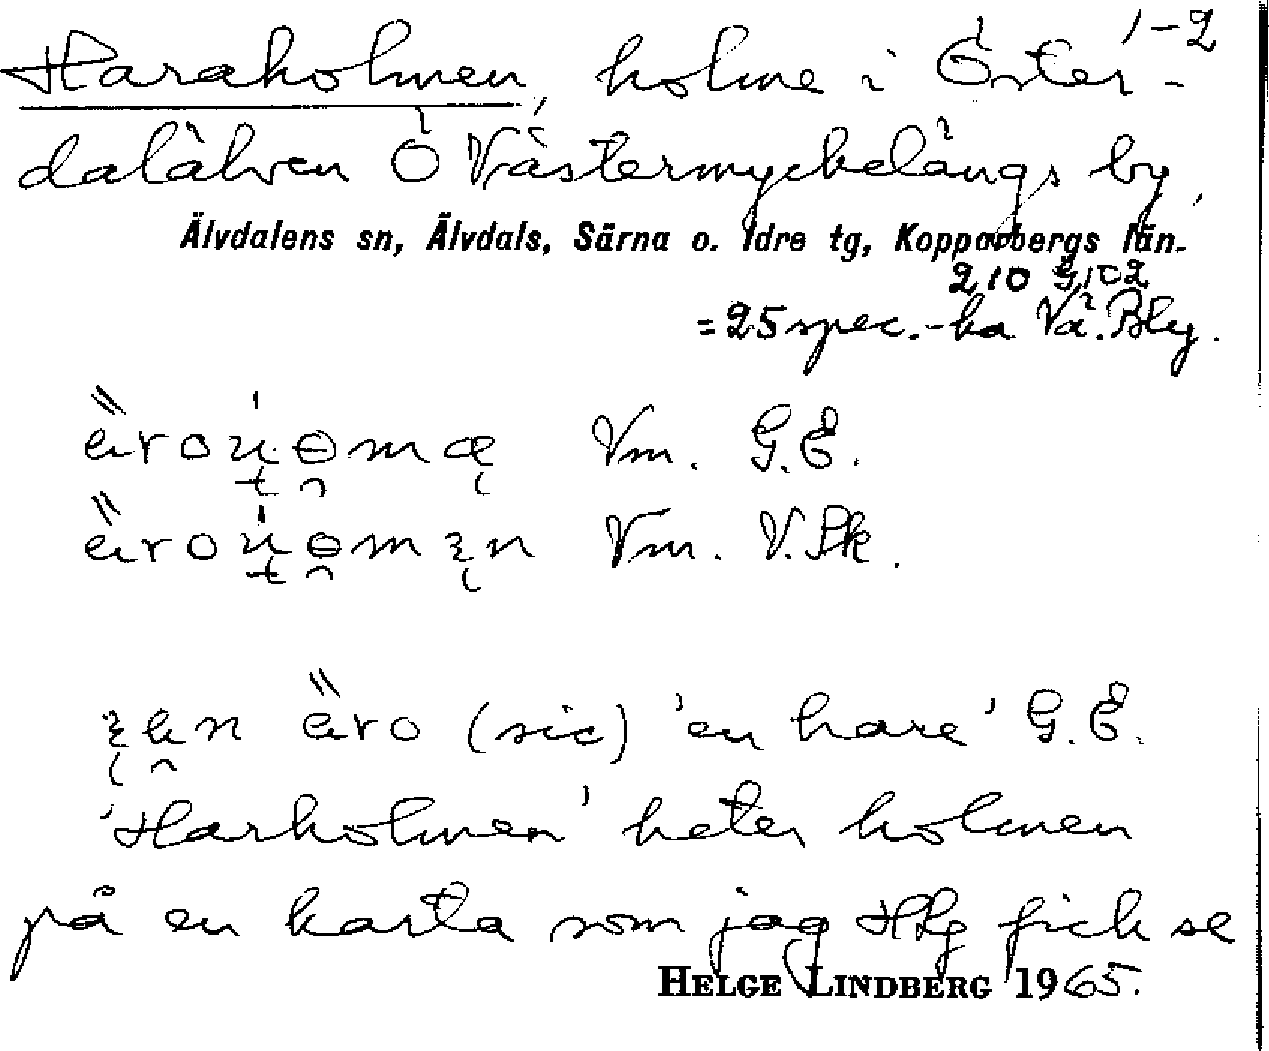 1-2
Haraholmen, holme i Öster-
dalälven Ö Västermyckelängs by,
Älvdalens sn, Älvdals, Särna o. Idre tg, Kopparbergs län.
210 G,102
=25 spec.-ka Vä. Bly.
Vm. G.E.
Vm. V.Pk.
(sic) 'en hare' G.E.
'Harholmen' heter holmen
på en karta som jag HLg fick se
HELGE LINDBERG 1965.